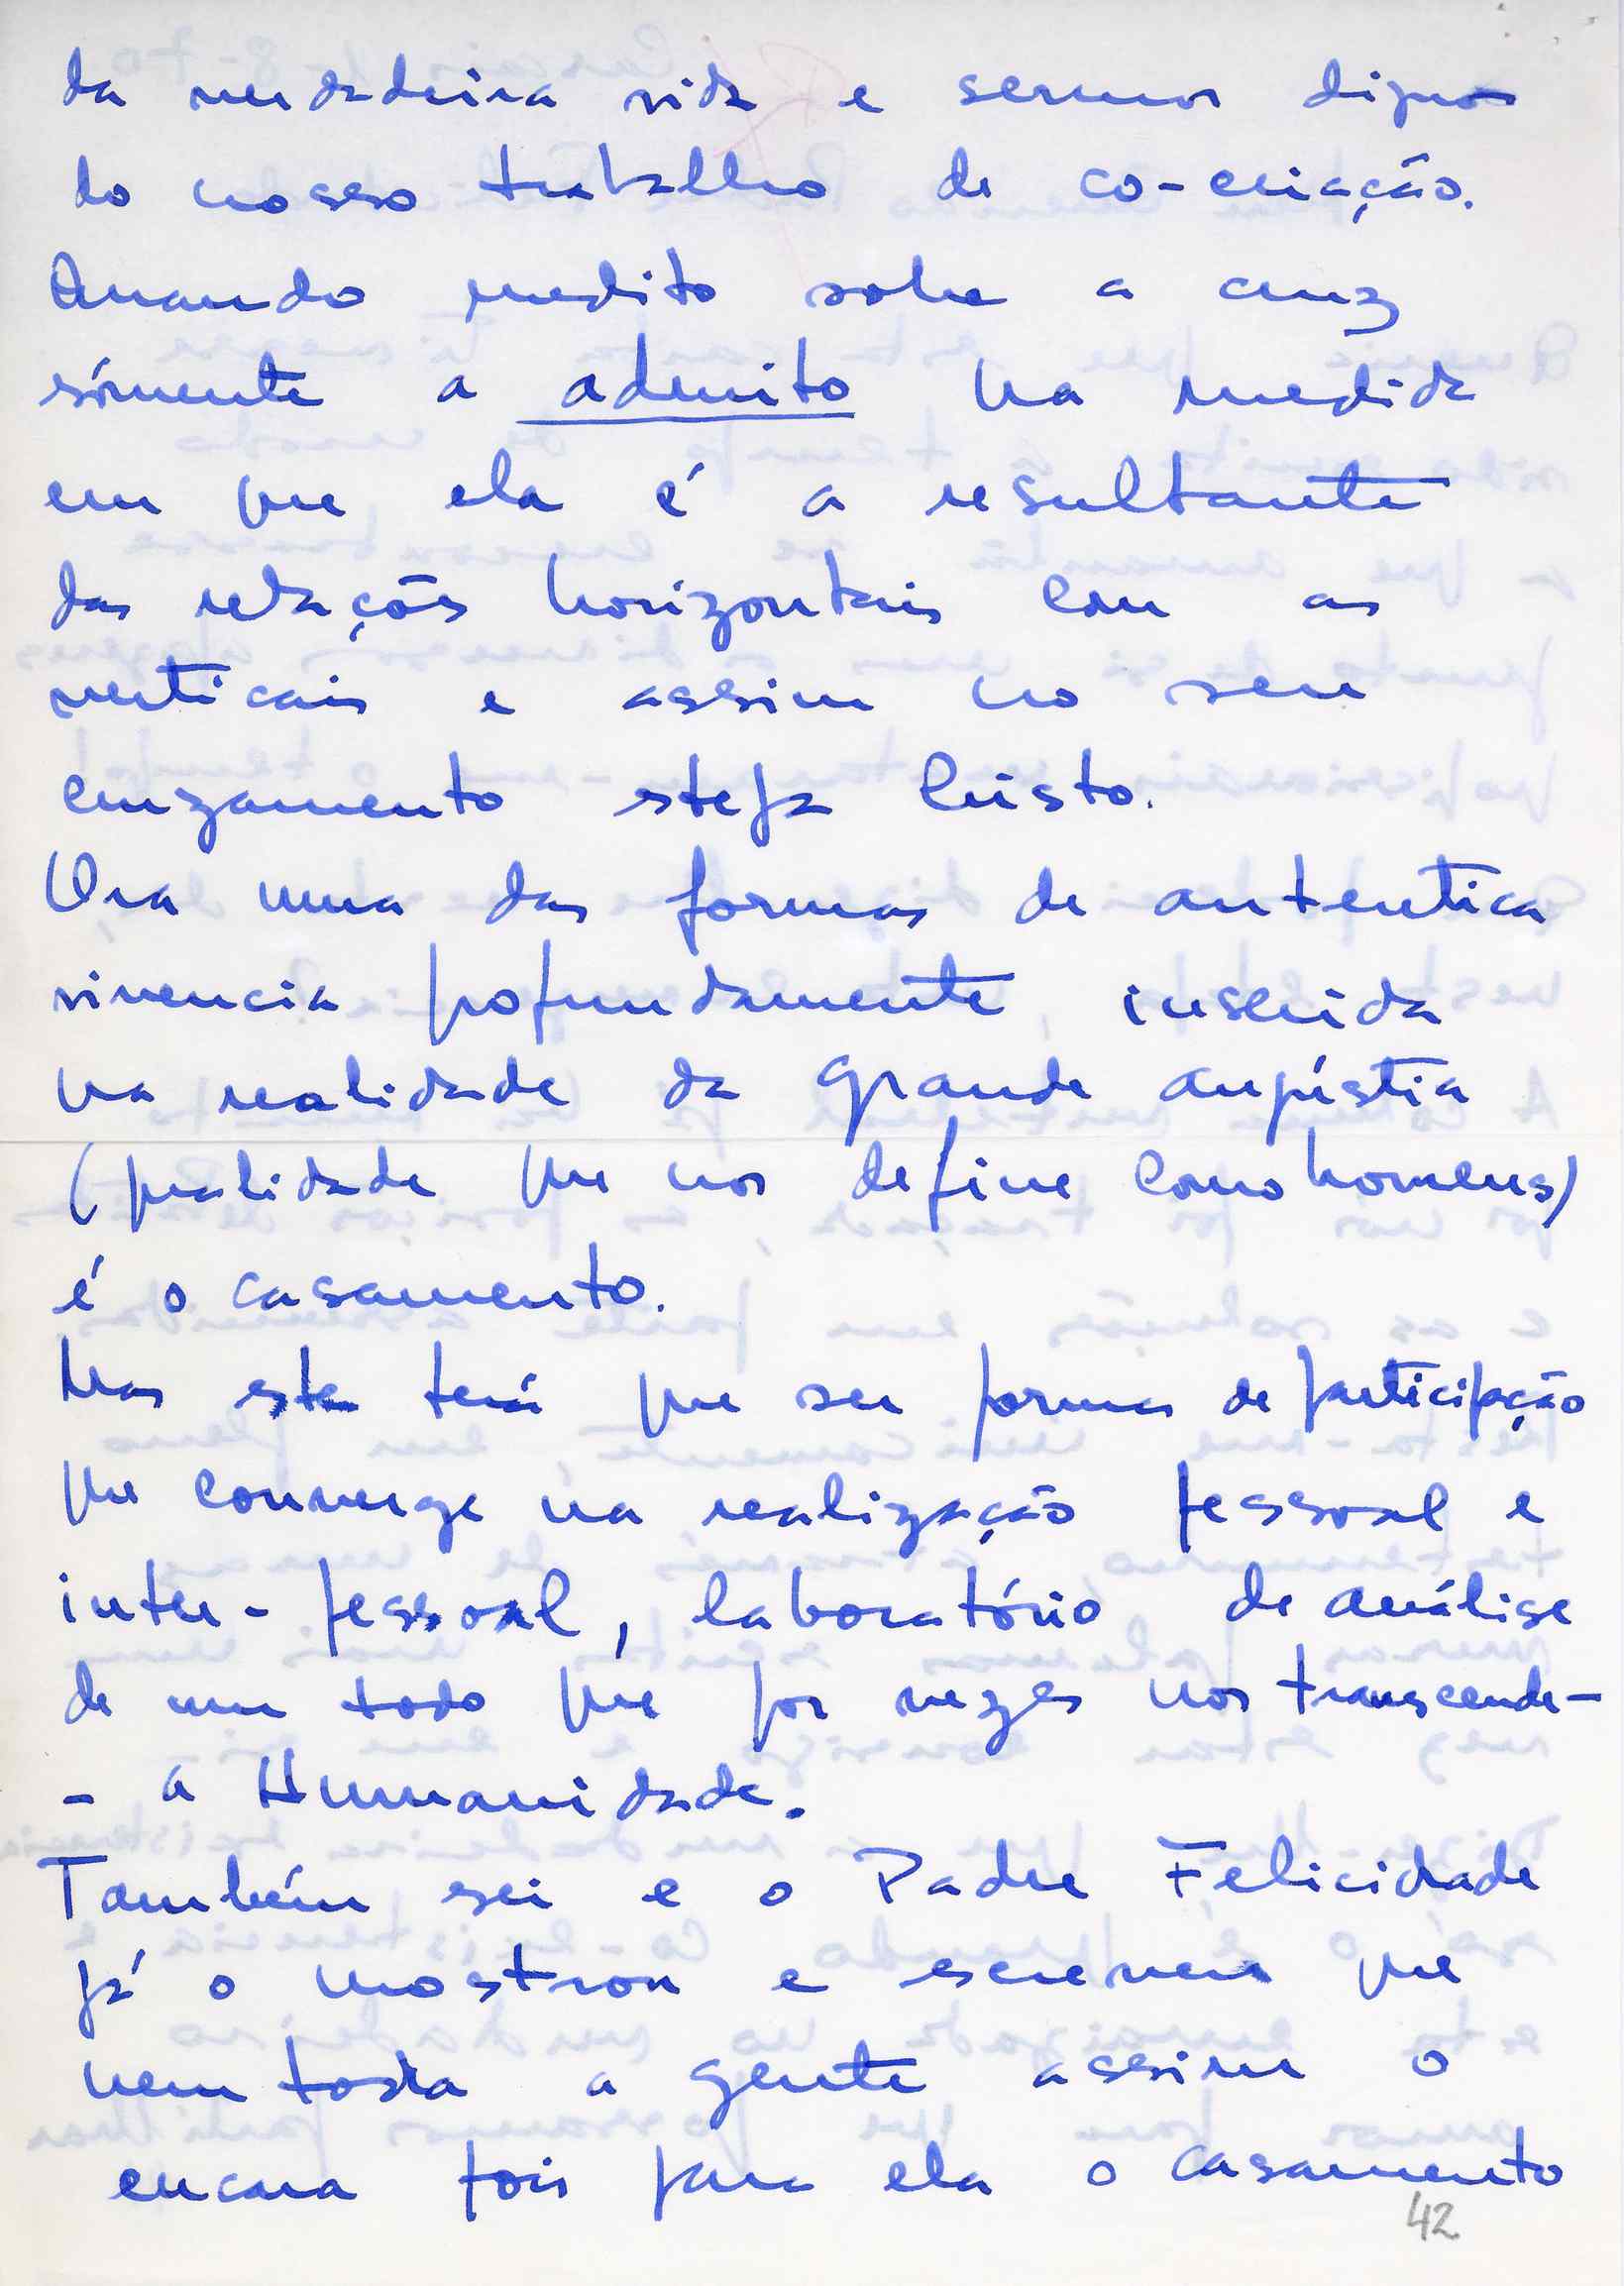 da verdadeira vida e sermos dignos
do nosso trabalho de co-criação.
Quando medito sobre a cruz
sómente a admito na medida
em que ela é a resultante
das relações horizontais com as
verticais e assim no seu
cruzamento esteja Cristo.
Ora uma das formas de autentica
vivencia profundamente inserida
na realidade da grande angústia
(qualidade que nos define como homens)
é o casamento.
Mas este terá que ser forma de participação
que converge na realização pessoal e
inter-pessoal, laboratório de análise
de um todo que por vezes nos transcende-
- a Humanidade.
Também sei e o Padre Felicidade
já o mostrou e escreveu que
nem toda a gente assim o
encara pois para ela o casamento
42